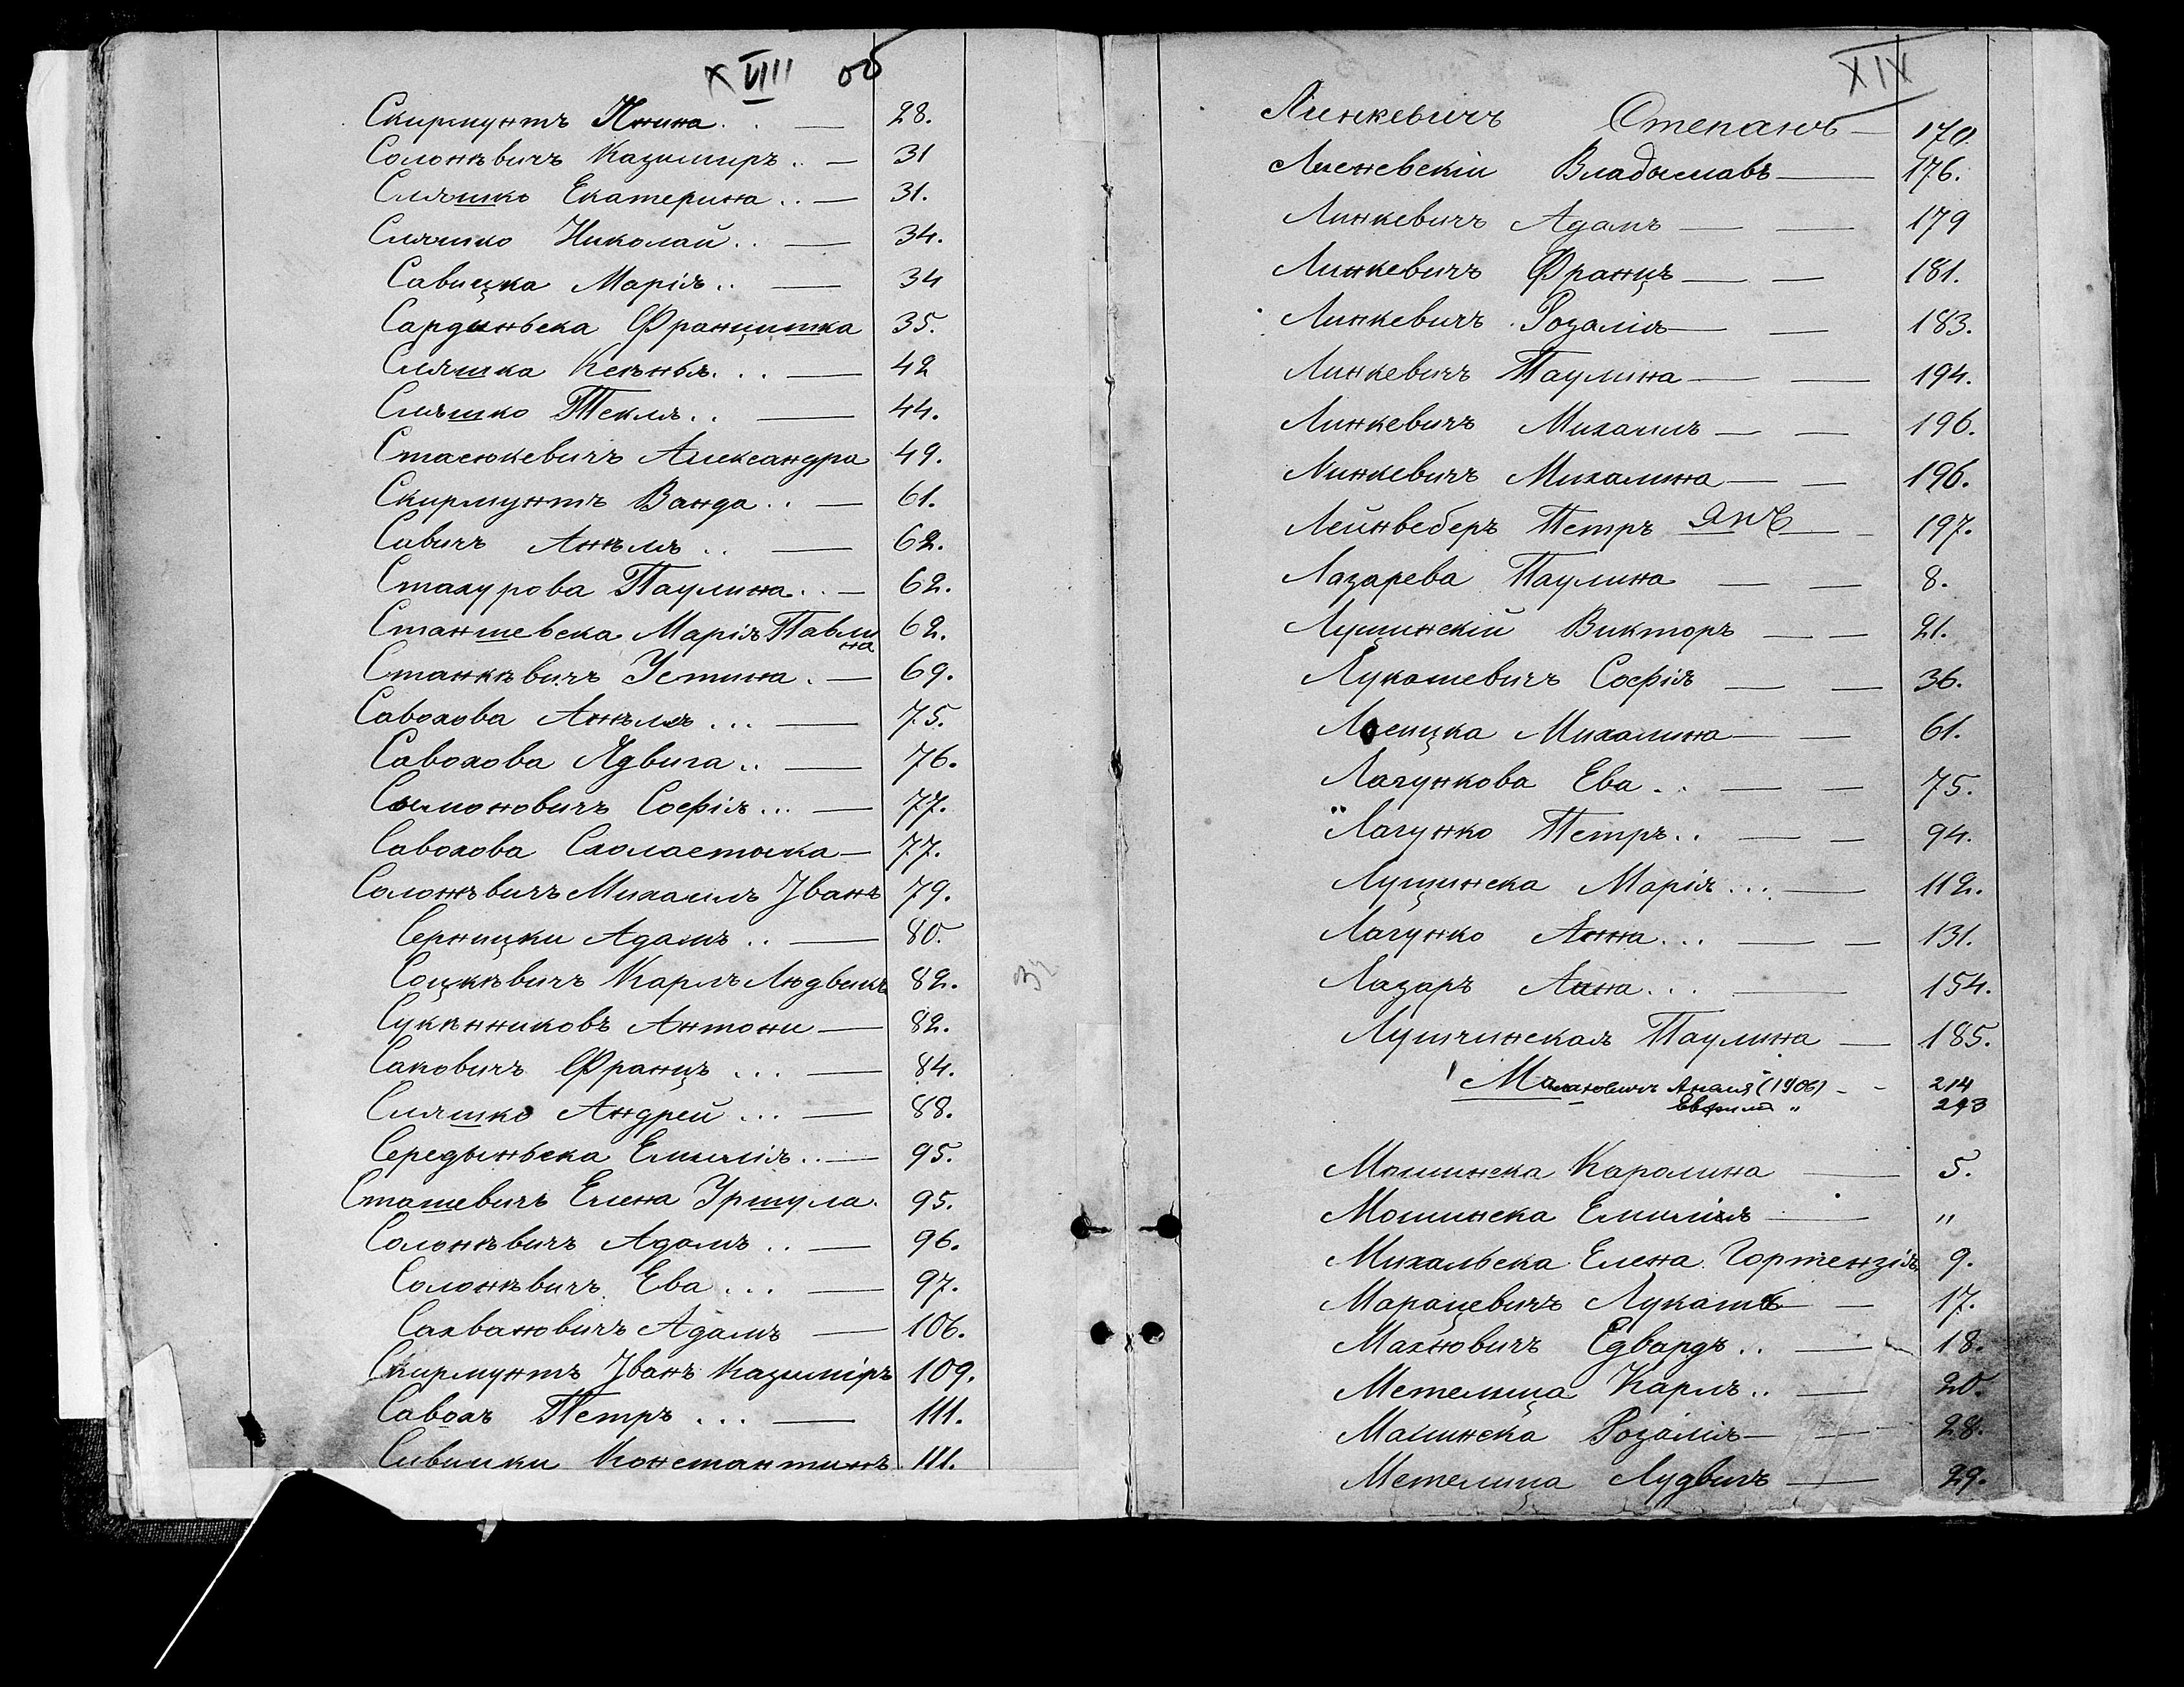 XVIII об
Скирмунтъ Янина . . — 28.
Солонѣвичъ Казимиръ . . — 31
Сляшко Екатерина . . — 31.
Сляшко Николай . . — 34.
Савицка Марія . . — 34
Сардыньска Францишка 35.
Сляшка 42
Сляшко Текля . . — 44.
Стасюкевичъ Александра 49.
Скирмунтъ Ванда . . — 61.
Савичъ Анѣля . . — 62.
Стахурова Паулина . . — 62.
Станшевска Марія Павли 62.
на
Станкѣвичъ Устина . — 69.
Савохова Анѣля . . . — 75.
Савохова Ядвига . . — 76.
Сымоновичъ Софія . . . — 77.
Савохова Схоластыка — 77.
Солонѣвичъ Михаилъ Іванъ 79.
Серницки Адамъ . . — 80.
Соцкѣвичъ Карлъ Людвикъ 82.
Сукѣнниковъ Антони — 82.
Саковичъ Францъ . . . — 84.
Сляшко Андрей . . . — 88.
Середыньска Емилія . . — 95.
Сташевичъ Елена Уршула . 95.
Солонѣвичъ Адамъ . . — 96.
Солонѣвичъ Ева . . . — 97.
Сахвановичъ Адамъ — 106.
Скирмунтъ Іванъ Казиміръ 109.
Савохъ Петръ . . . — 111.
Сивицки Константинъ 111.
XIX
Линкевичъ Степанъ — 170.
Лисневскіи Владыславъ — 176.
Линкевичъ Адамъ — — 179
Линкевичъ Францъ — — 181.
Линкевичъ Розалія — — 183.
Линкевичъ Паулина — — 194.
Линкевичъ Михаилъ — — 196.
Линкевичъ Михалина — — 196.
Лейнвеберъ Петръ Янъ — — 197.
Лазарева Паулина — — 8.
Лущинскій Викторъ — — 21.
Лукашевичъ Софія — — 36.
Лосицка Михалина — — 61.
Лагункова Ева . . — — 75.
"Лагунко Петръ . . — — 94.
Лущинска Марія . . . — 112.
Лагунко Анна . . . — — 131.
Лазаръ Анна . . . — 154.
Лушчинская Паулина — 185.
(1906) - - 214
" 243
Мошинска Каролина — 5.
Мошинска Емилія — "
Михальска Елена Гортензія 9.
Марацевичъ Лукашъ — — 17.
Махновичъ Едвардъ . . — 18.
Метелица Карлъ . . — 20.
Малинска Розалія — — 28.
Метелица Лудвигъ — 29.